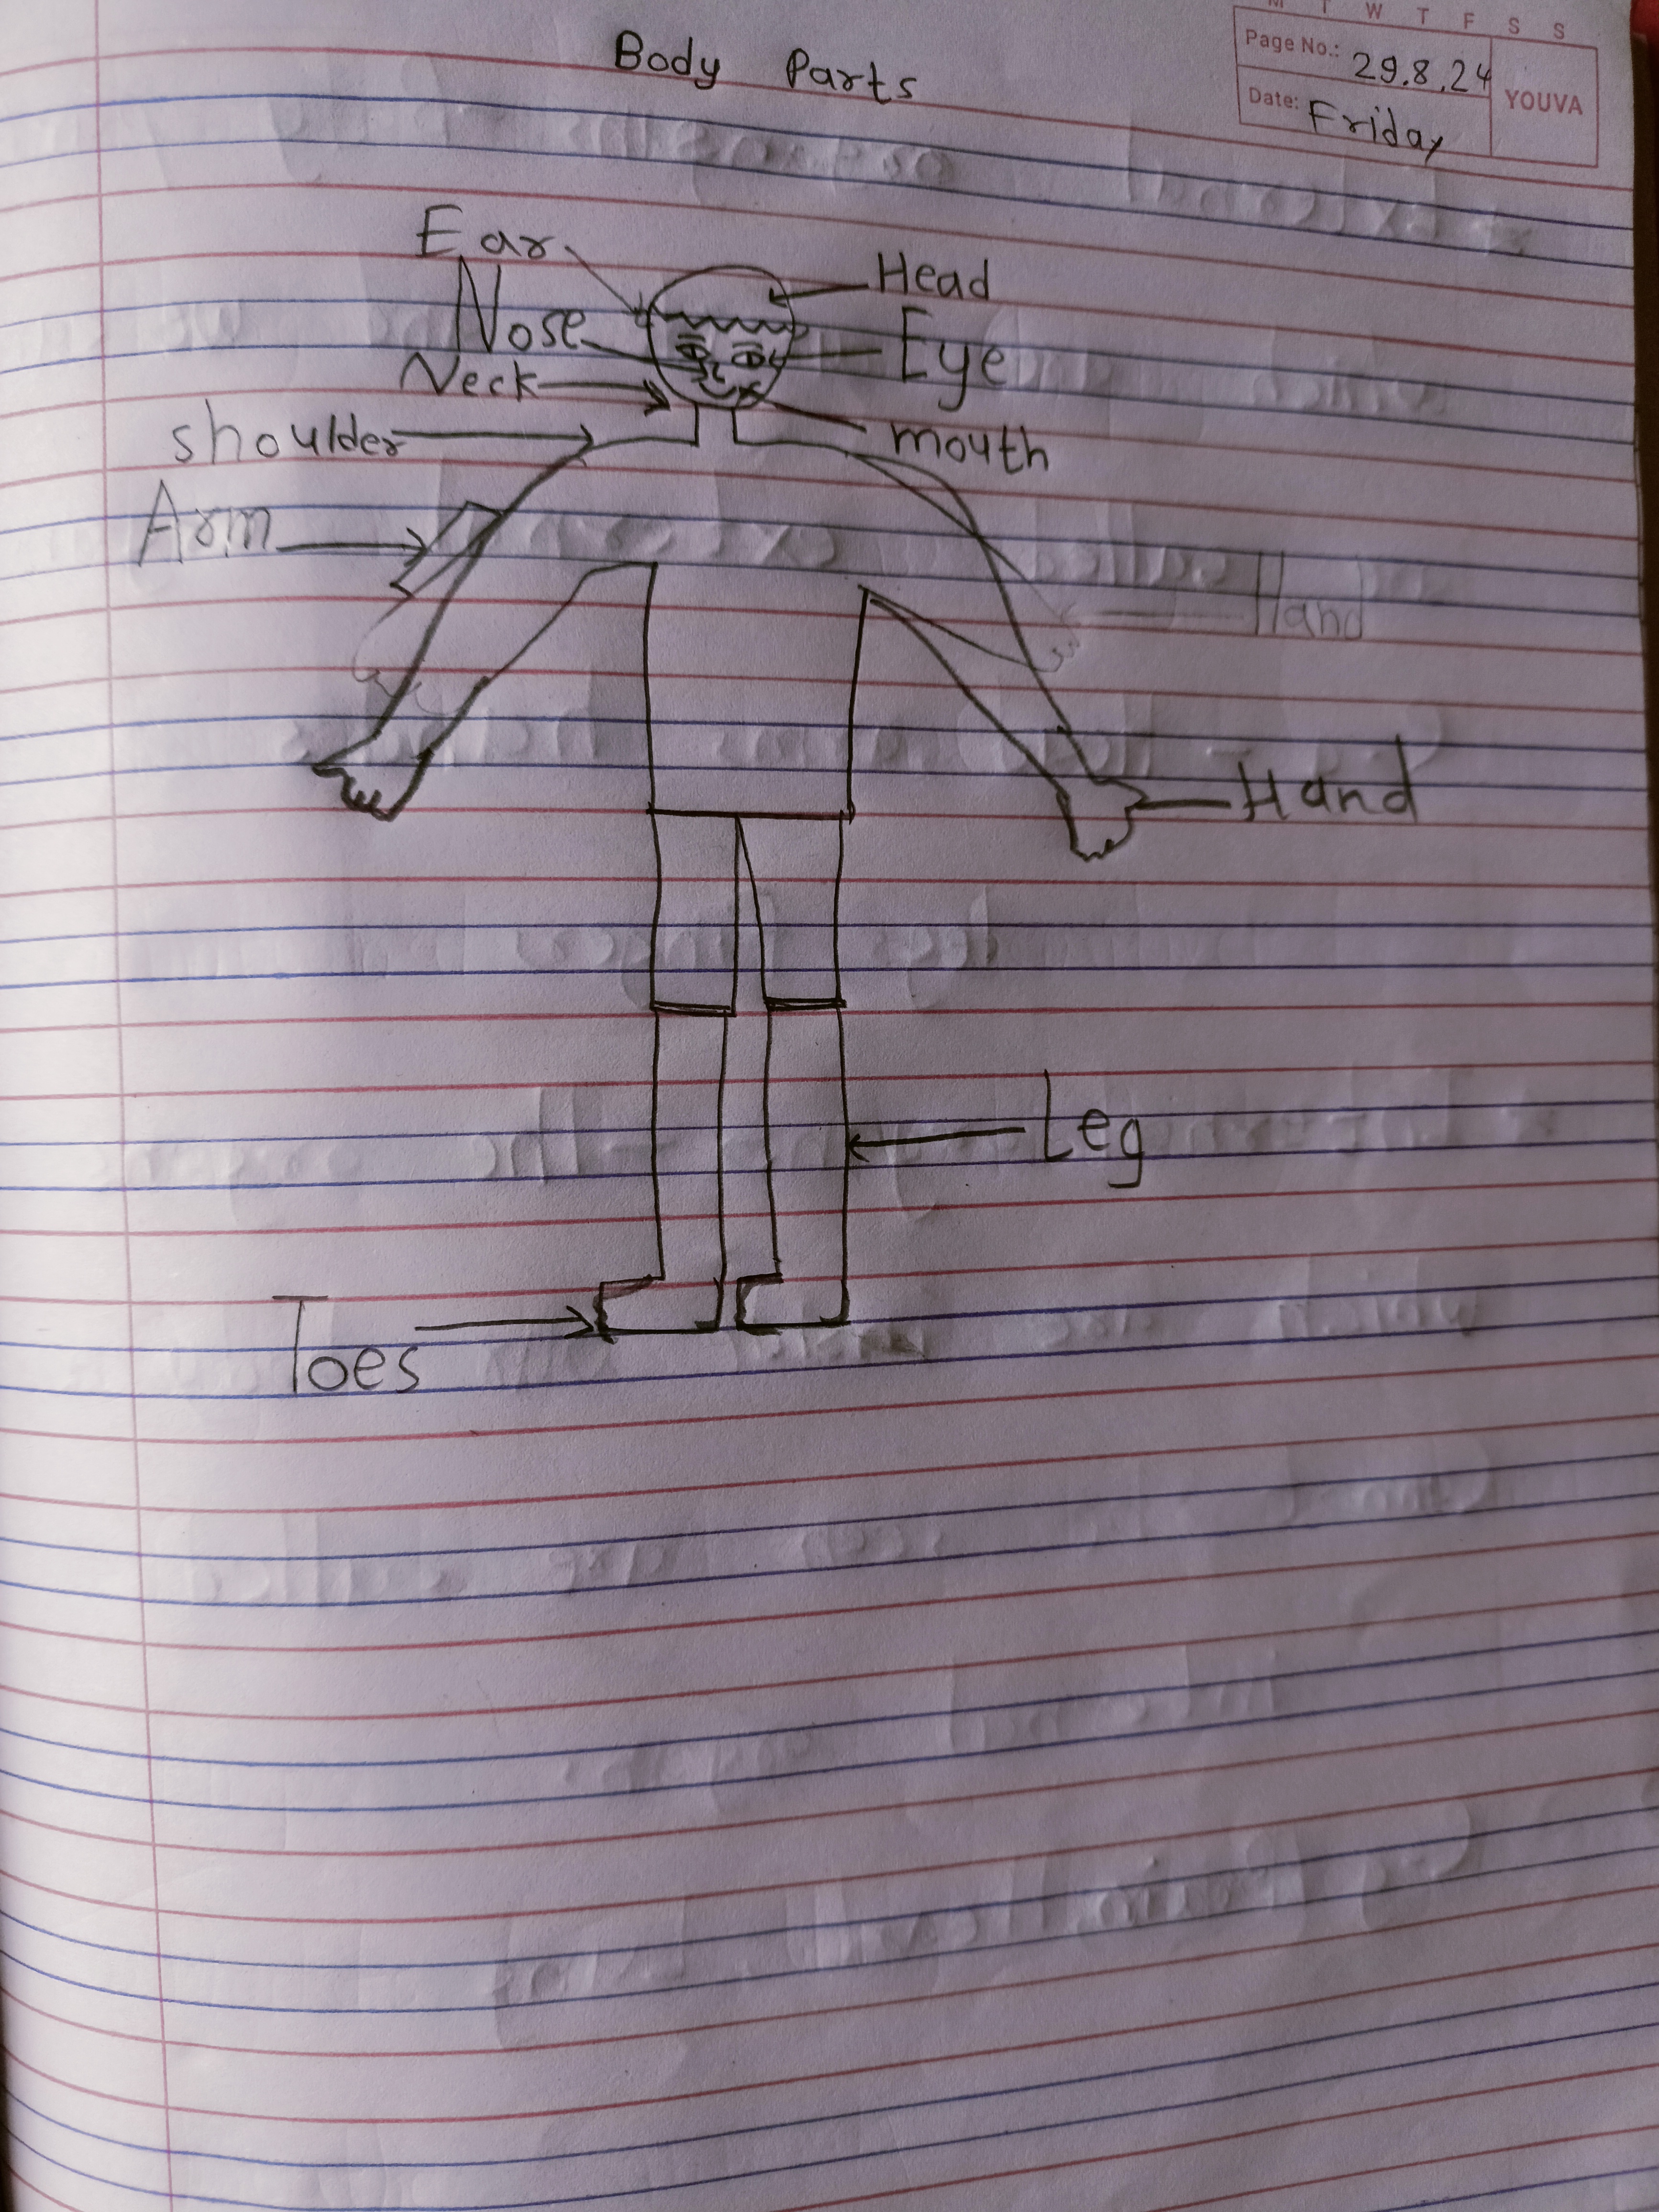 M T W T F S S
Page No.: 29.8.24
Date: Friday
YOUVA
Body Parts
Ear
Head
Nose
Eye
Neck
shoulder
mouth
Arm
Hand
Hand
Leg
Toes